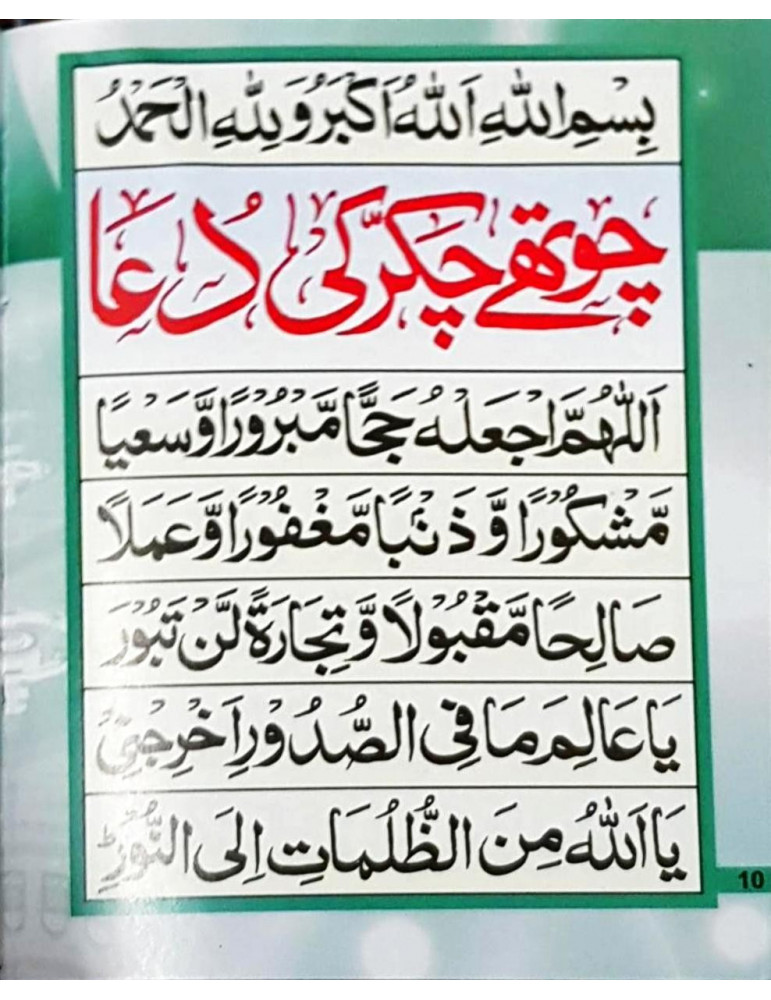 بِسْمِ اللّٰهِ اَللّٰهُ اَكْبَرُ وَلِلّٰهِ الْحَمْدُ
چوتھے چکّر کی دُعا
اَللّٰهُمَّ اجْعَلْهُ حَجًّا مَّبْرُوْرًا وَّسَعْيًا
مَّشْكُوْرًا وَّ ذَنْۢبًا مَّغْفُوْرًا وَّعَمَلًا
صَالِحًا مَّقْبُوْلًا وَّ تِجَارَةً لَّنْ تَبُوْرَ
يَا عَالِمَ مَا فِى الصُّدُوْرِ اَخْرِجْنِىْ
يَا اَللّٰهُ مِنَ الظُّلُمَاتِ اِلَى النُّوْرِؕ
10